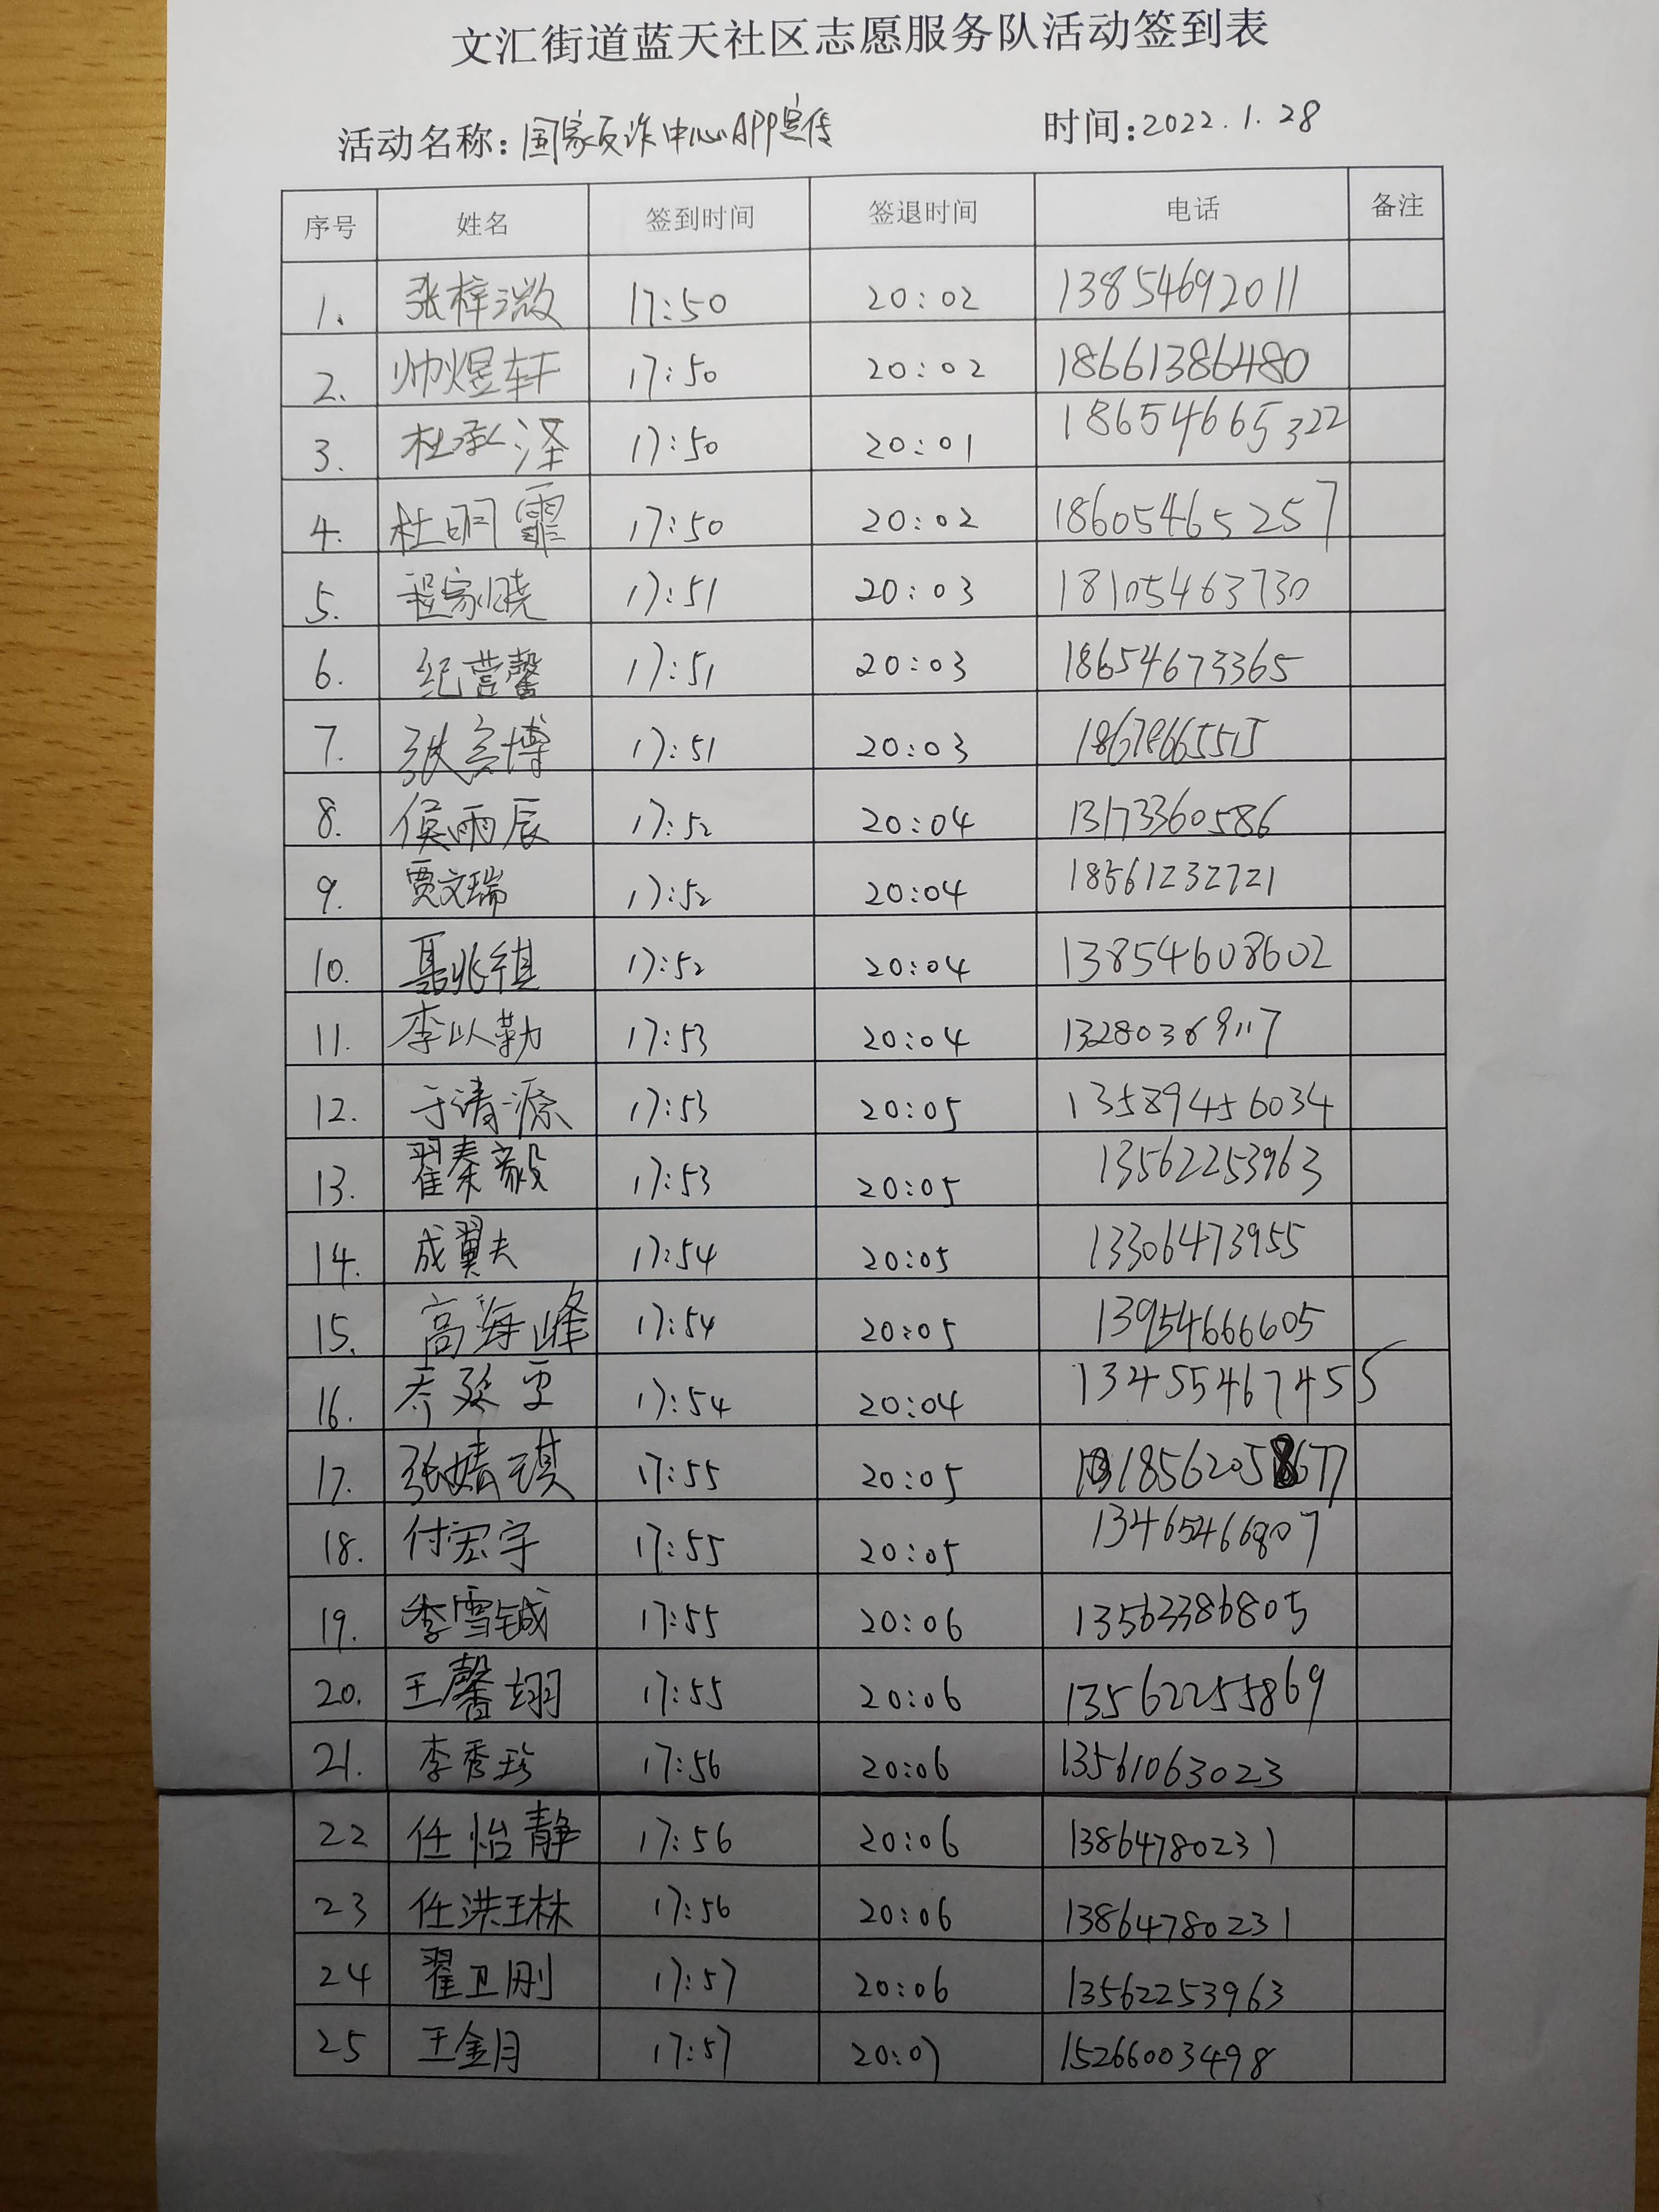 文汇街道蓝天社区志愿服务队活动签到表
活动名称：国家反诈中心APP宣传 时间：2022.1.28
序号 姓名 签到时间 签退时间 电话 备注
1. 张梓溦 17:50 20:02 13854692011
2. 帅煜轩 17:50 20:02 18661386480
3. 杜承泽 17:50 20:01 18654665322
4. 杜明霏 17:50 20:02 18605465257
5. 程家晓 17:51 20:03 18105463730
6. 纪营馨 17:51 20:03 18654673365
7. 张宾博 17:51 20:03 18678665515
8. 侯雨辰 17:52 20:04 13173360586
9. 贾文瑞 17:52 20:04 18561232721
10. 聂兆祺 17:52 20:04 13854608602
11. 李以勒 17:53 20:04 13280369117
12. 于清源 17:53 20:05 13589456034
13. 翟秦毅 17:53 20:05 13562253963
14. 成翼夫 17:54 20:05 13306473955
15. 高海峰 17:54 20:05 13954666605
16. 17:54 20:04 134554674555
17. 张婧琪 17:55 20:05 18562058677
18. 付宏宇 17:55 20:05 13465466807
19. 李雪铖 17:55 20:06 13563386805
20. 王馨翊 17:55 20:06 13562255869
21. 李秀珍 17:56 20:06 13561063023
22 任怡静 17:56 20:06 13864780231
23 任洪琳 17:56 20:06 13864780231
24 翟卫刚 17:57 20:06 13562253963
25 王金月 17:57 20:07 15266003498